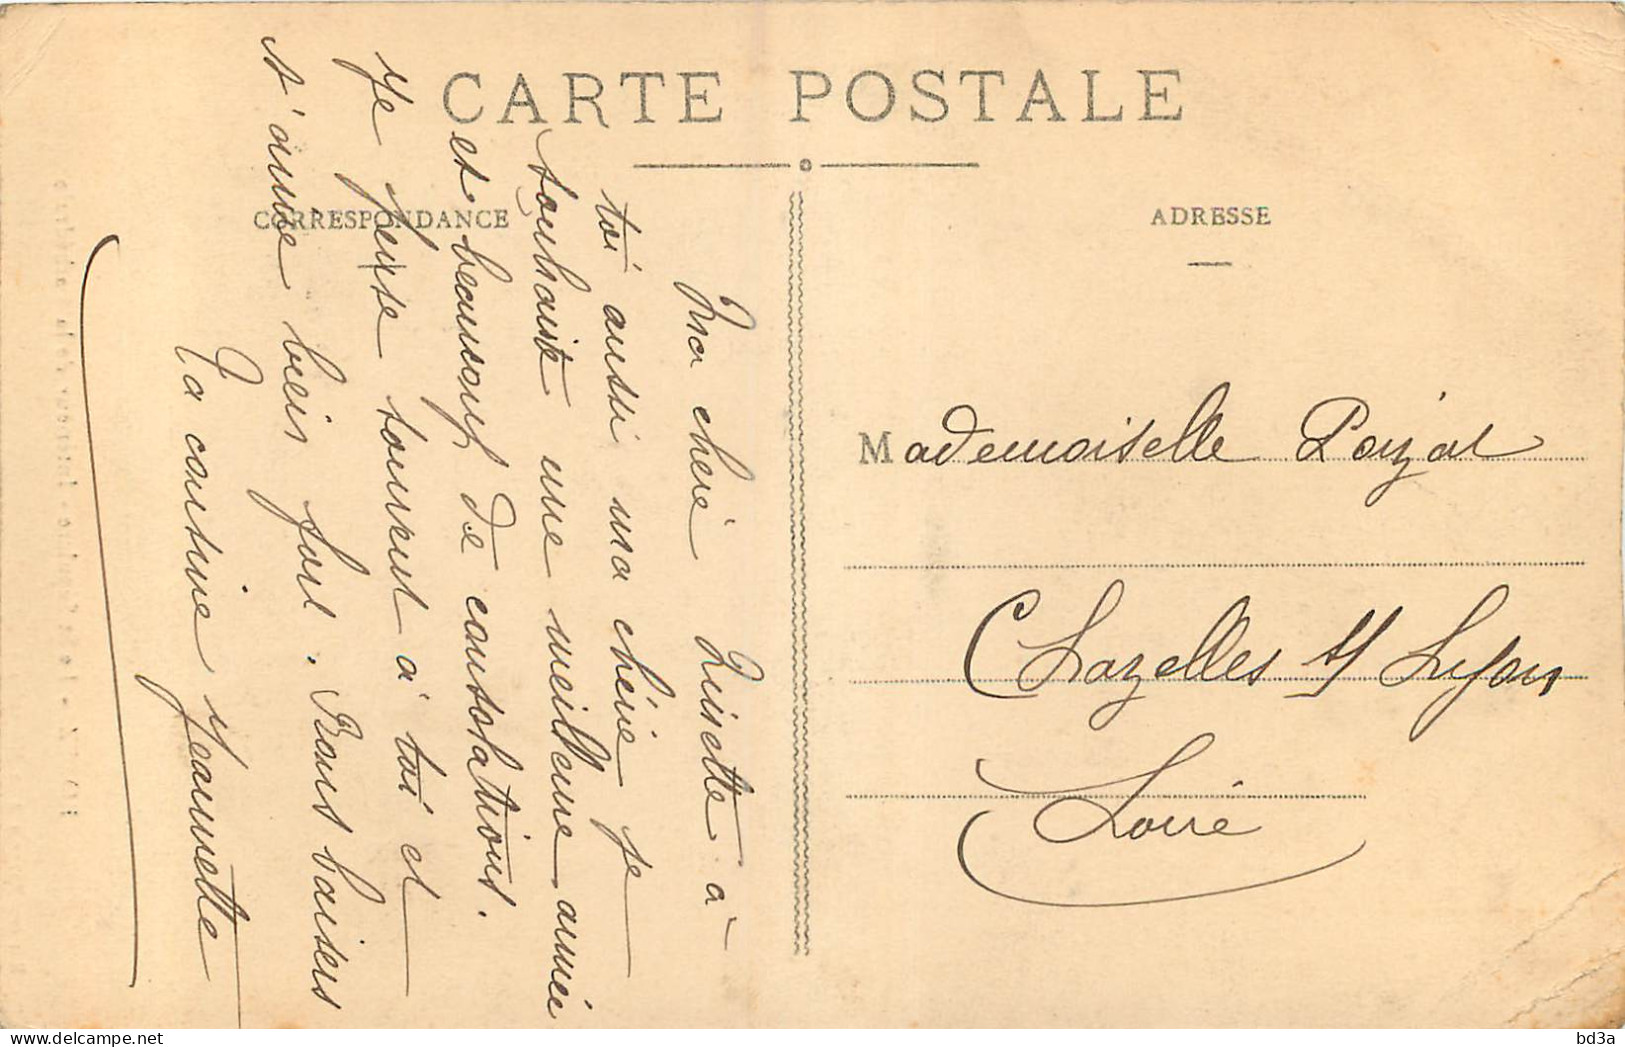 CARTE POSTALE
CORRESPONDANCE
ADRESSE
Ma chère Lisette à
toi aussi ma chérie je
souhaite une meilleure année
et beaucoup de consolations.
Je pense souvent à toi et
t'aime bien fort. Bons baisers
Ta cousine Jeannette
Mademoiselle
Chazelles s/ Lyon
Loire
bd3a